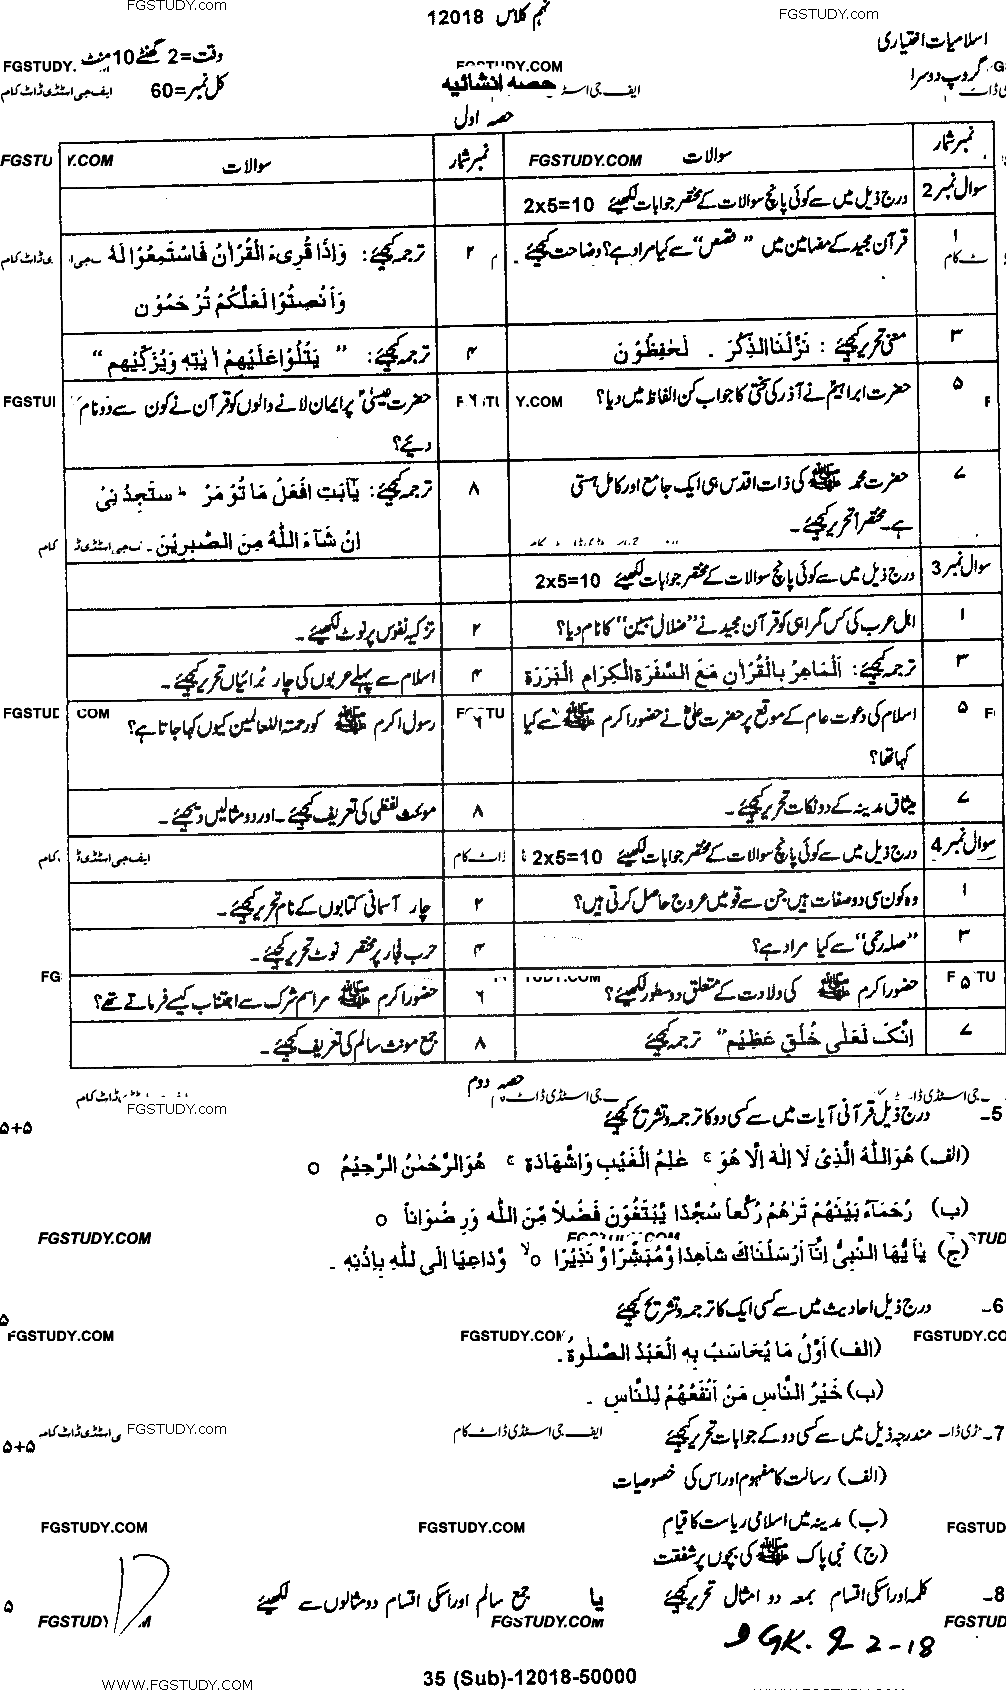 FGSTUDY.com
نہم کلاس 12018
FGSTUDY.com
اسلامیات اختیاری
وقت=2 گھنٹے 10 منٹ
گروپ دوسرا
حصہ انشائیہ
کل نمبر=60
حصہ اول
نمبر شمار سوالات نمبر شمار سوالات
سوال نمبر 2 درج ذیل میں سے کوئی پانچ سوالات کے مختصر جوابات لکھیئے 2x5=10
۱ قرآن مجید کے مضامین میں "قصص" سے کیا مراد ہے؟ وضاحت کیجئے۔
۲ ترجمہ کیجئے: وَاِذَا قُرِیءَ الْقُرْاٰنُ فَاسْتَمِعُوْا لَہٗ
وَاَنْصِتُوْا لَعَلَّکُمْ تُرْحَمُوْنَ
۳ معنی تحریر کیجئے: نَزَّلْنَا الذِّکْرَ ۔ لَحٰفِظُوْنَ
۴ ترجمہ کیجئے: "یَتْلُوْا عَلَیْھِمْ اٰیٰتِہٖ وَیُزَکِّیْھِمْ"
۵ حضرت ابراہیمؑ نے آذر کی سختی کا جواب کن الفاظ میں دیا؟
۶ حضرت عیسیٰؑ پر ایمان لانے والوں کو قرآن نے کون سے دو نام
دیئے؟
۷ حضرت محمد ﷺ کی ذات اقدس ہی ایک جامع اور کامل ہستی
ہے۔ مختصراً تحریر کیجئے۔
۸ ترجمہ کیجئے: یٰٓاَبَتِ افْعَلْ مَا تُؤْمَرُ سَتَجِدُنِیْٓ
اِنْ شَآءَ اللّٰہُ مِنَ الصّٰبِرِیْنَ۔
سوال نمبر 3 درج ذیل میں سے کوئی پانچ سوالات کے مختصر جوابات لکھیئے 2x5=10
۱ اہل عرب کی کس گمراہی کو قرآن مجید نے "ضلال مبین" کا نام دیا؟
۲ تزکیہ نفوس پر نوٹ لکھیئے۔
۳ ترجمہ کیجئے: اَلْمَاھِرُ بِالْقُرْاٰنِ مَعَ السَّفَرَۃِ الْکِرَامِ الْبَرَرَۃِ
۴ اسلام سے پہلے عربوں کی چار بُرائیاں تحریر کیجئے۔
۵ اسلام کی دعوت عام کے موقع پر حضرت علیؓ نے حضور اکرم ﷺ سے کیا
کہا تھا؟
۶ رسول اکرم ﷺ کو رحمتہ اللعالمین کیوں کہا جاتا ہے؟
۷ میثاق مدینہ کے دو نکات تحریر کیجئے۔
۸ مونث لفظی کی تعریف کیجئے۔ اور دو مثالیں دیجئے۔
سوال نمبر 4 درج ذیل میں سے کوئی پانچ سوالات کے مختصر جوابات لکھیئے 2x5=10
۱ وہ کون سی دو صفات ہیں جن سے قومیں عروج حاصل کرتی ہیں؟
۲ چار آسمانی کتابوں کے نام تحریر کیجئے۔
۳ "صلہ رحمی" سے کیا مراد ہے؟
۴ حرب فجار پر مختصر نوٹ تحریر کیجئے۔
۵ حضور اکرم ﷺ کی ولادت کے متعلق دو سطور لکھیئے؟
۶ حضور اکرم ﷺ مراسم شرک سے اجتناب کیسے فرماتے تھے؟
۷ اِنَّکَ لَعَلٰی خُلُقٍ عَظِیْمٍ" ترجمہ کیجئے
۸ جمع مونث سالم کی تعریف کیجئے۔
حصہ دوم
FGSTUDY.com
5۔ درج ذیل قرآنی آیات میں سے کسی دو کا ترجمہ و تشریح کیجئے ۵+۵
(الف) ھُوَاللّٰہُ الَّذِیْ لَا اِلٰہَ اِلَّا ھُوَ عٰلِمُ الْغَیْبِ وَالشَّھَادَۃِ ھُوَالرَّحْمٰنُ الرَّحِیْمُ ○
(ب) رُحَمَآءُ بَیْنَھُمْ تَرٰھُمْ رُکَّعاً سُجَّدًا یَّبْتَغُوْنَ فَضْلاً مِّنَ اللّٰہِ وَرِضْوَاناً ○
FGSTUDY.COM
(ج) یٰٓاَیُّھَا النَّبِیُّ اِنَّآ اَرْسَلْنَاکَ شَاھِدًا وَّمُبَشِّرًا وَّنَذِیْرًا ○ وَّدَاعِیًا اِلَی لِلّٰہِ بِاِذْنِہٖ۔
6۔ درج ذیل احادیث میں سے کسی ایک کا ترجمہ و تشریح کیجئے ۵
FGSTUDY.COM FGSTUDY.COM FGSTUDY.CO
(الف) اَوَّلُ مَا یُحَاسَبُ بِہِ الْعَبْدُ الصَّلٰوۃُ۔
(ب) خَیْرُ النَّاسِ مَنْ اَنْفَعُھُمْ لِلنَّاسِ۔
7۔ مندرجہ ذیل میں سے کسی دو کے جوابات تحریر کیجئے ۵+۵
FGSTUDY.com
(الف) رسالت کا مفہوم اور اس کی خصوصیات
(ب) مدینہ میں اسلامی ریاست کا قیام
FGSTUDY.COM FGSTUDY.COM FGSTUD
(ج) نبی پاک ﷺ کی بچوں پر شفقت
8۔ کلمہ اور اسکی اقسام بمعہ دو امثال تحریر کیجئے یا جمع سالم اور اسکی اقسام دو مثالوں سے لکھیئے ۵
FGSTUDY.COM FGSTUD
GK. 9-2-18
35 (Sub)-12018-50000
WWW.FGSTUDY.COM